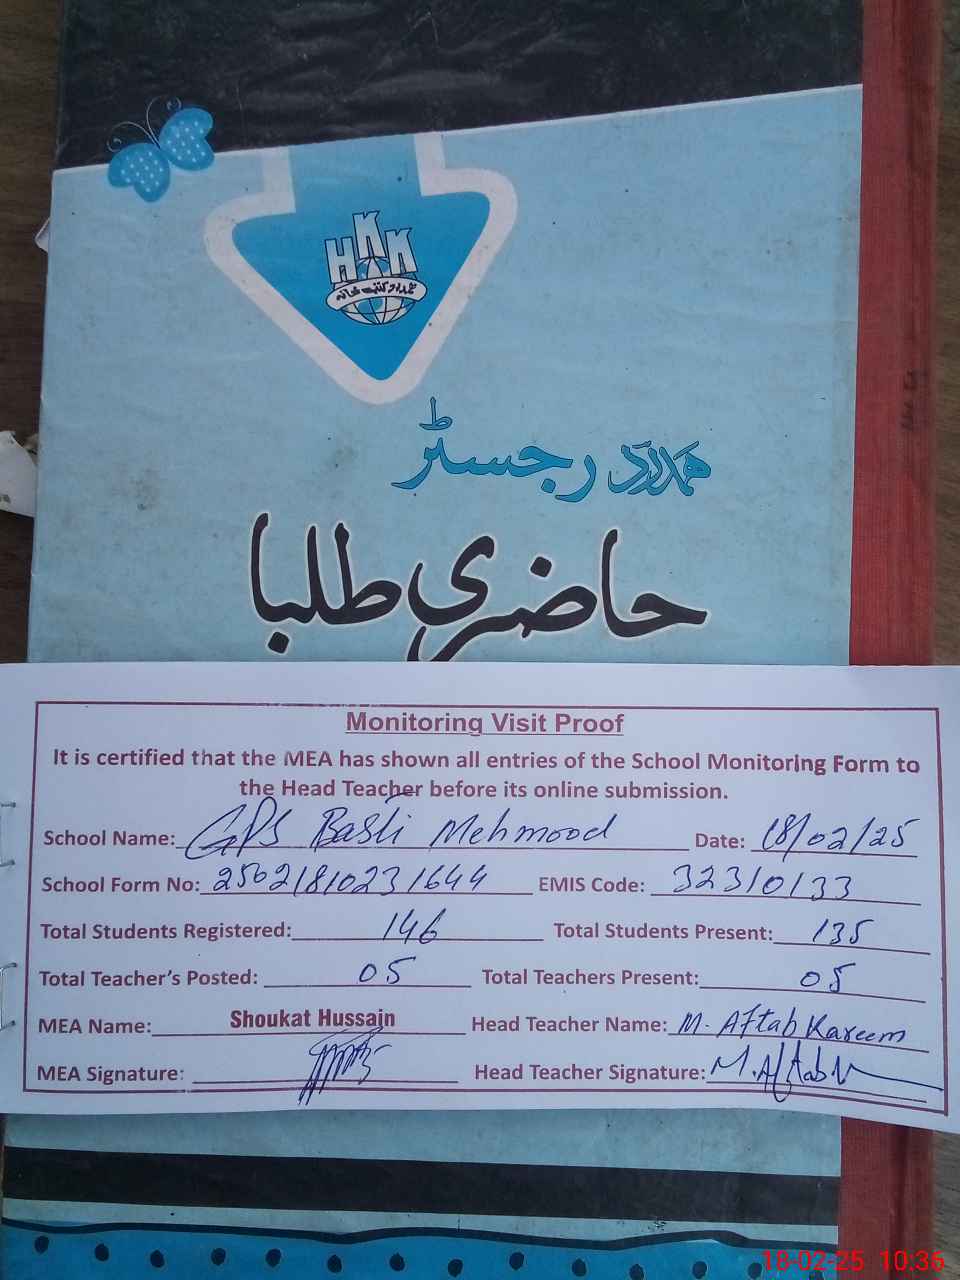 HKK
ہمدرد کتب خانہ
ہمدرد رجسٹر
حاضری طلبا
Monitoring Visit Proof
It is certified that the MEA has shown all entries of the School Monitoring Form to
the Head Teacher before its online submission.
School Name: GPS Basti Mehmood Date: 18/02/25
School Form No: 25021810231644 EMIS Code: 32310133
Total Students Registered: 146 Total Students Present: 135
Total Teacher's Posted: 05 Total Teachers Present: 05
MEA Name: Shoukat Hussain Head Teacher Name: M. Aftab Kareem
MEA Signature: Head Teacher Signature: M. Aftab
18-02-25 10:36